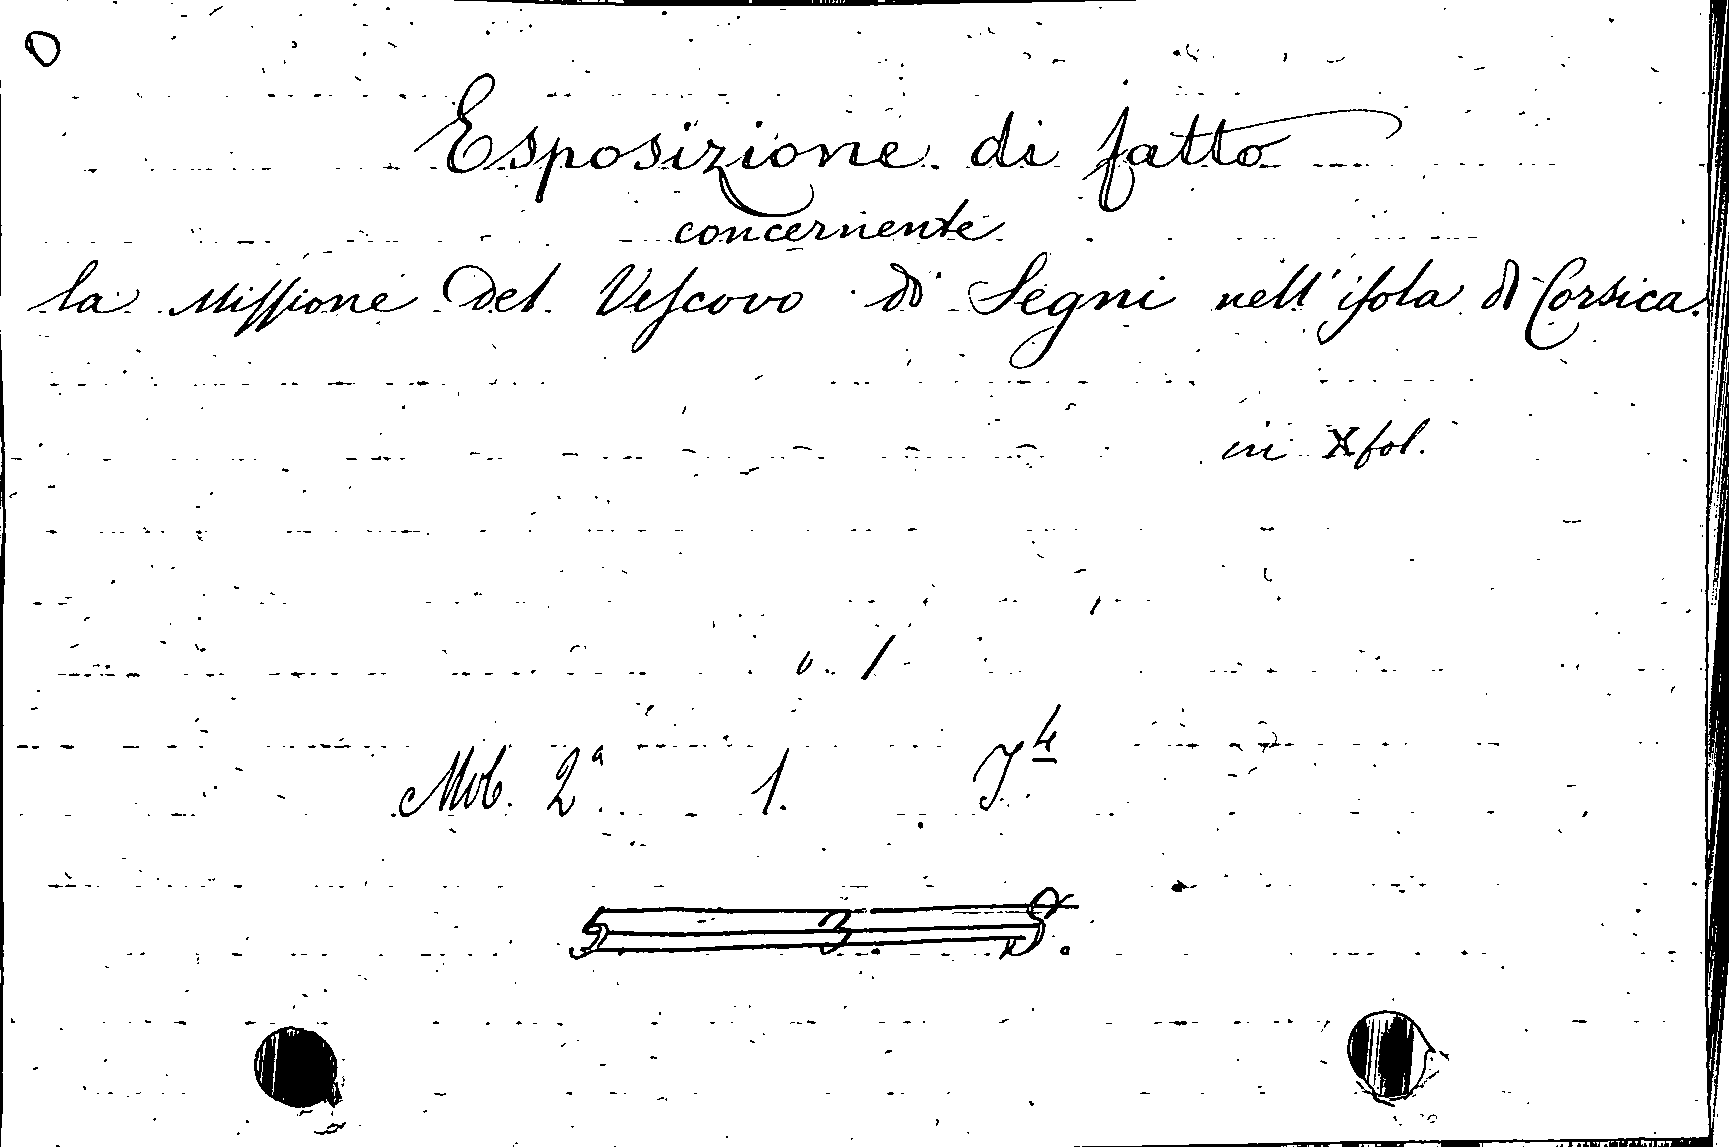 Esposizione di fatto
concernente
la Missione del Vescovo di Segni nell'isola di Corsica.
in fol.
v. 1
Mob. 2ª. 1. J⁴
5. 3. 8.